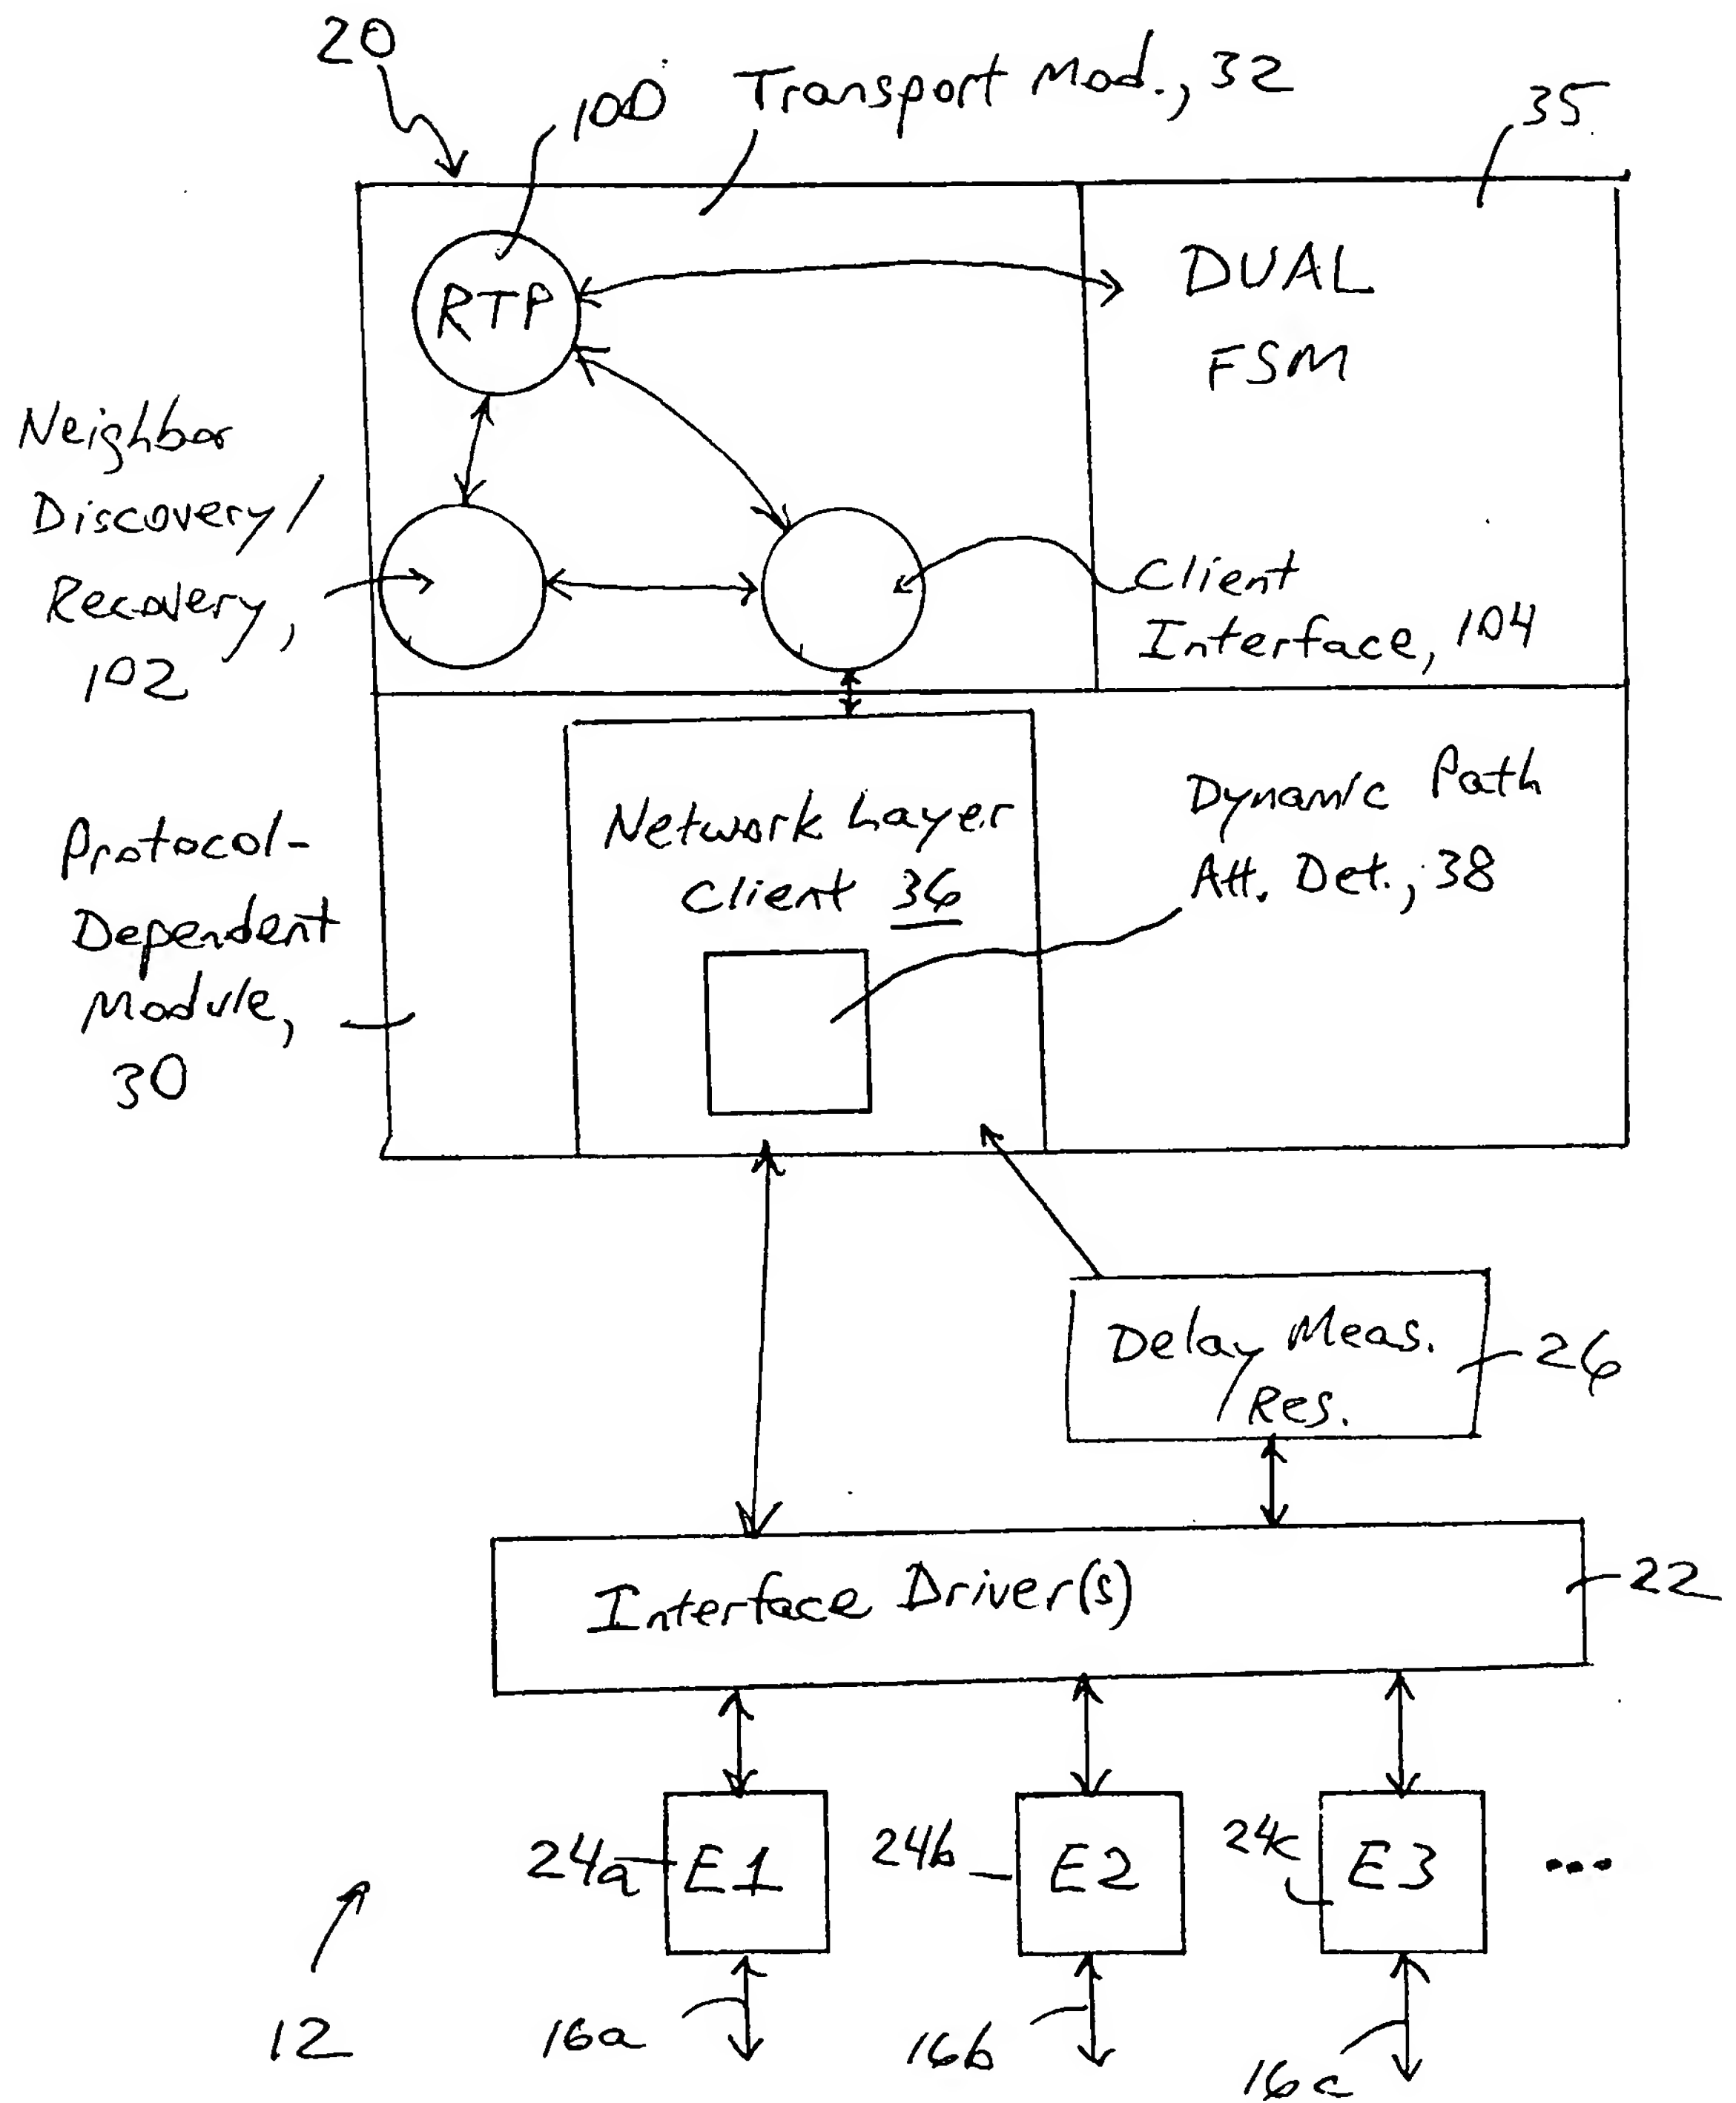 20
100
Transport Mod., 32
35
RTP
DUAL
FSM
Neighbor
Discovery/
Recovery,
102
Client
Interface, 104
Protocol-
Dependent
Module,
30
Network Layer
Client 36
Dynamic Path
Att. Det., 38
Delay Meas.
/Res.
26
Interface Driver(s)
22
24a
E1
24b
E2
24c
E3
...
12
16a
16b
16c